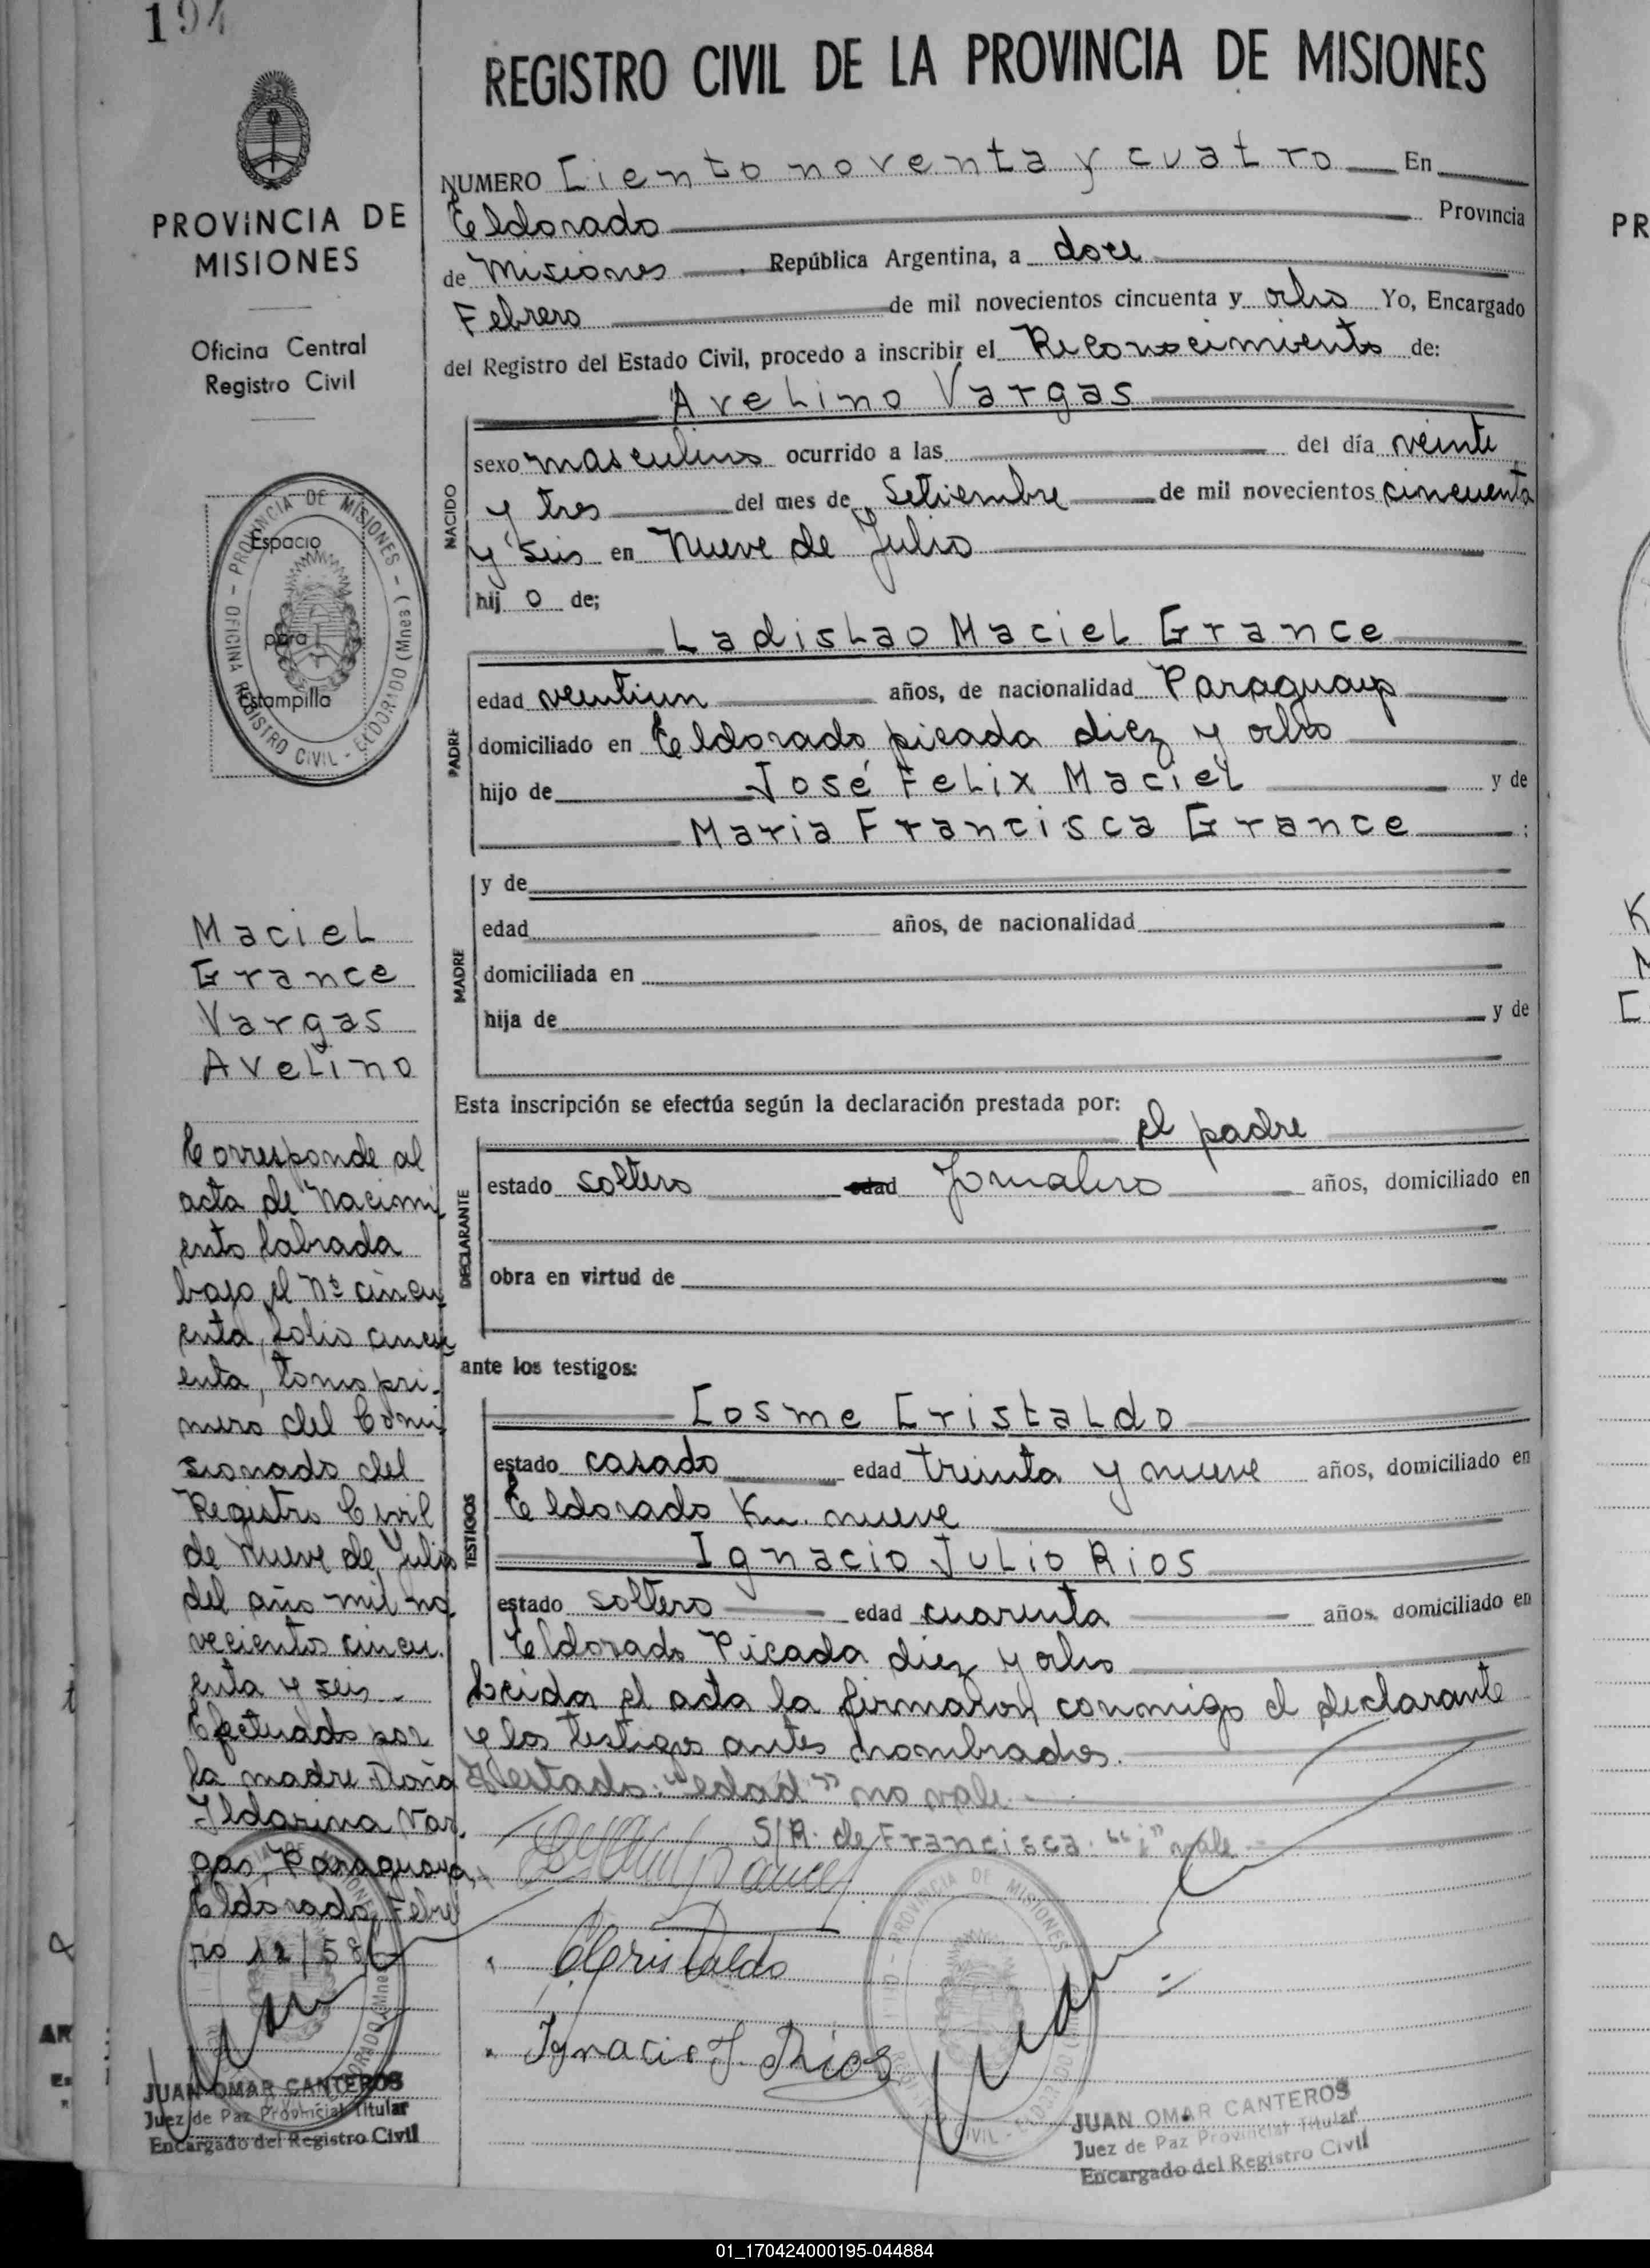 194
REGISTRO CIVIL DE LA PROVINCIA DE MISIONES
PROVINCIA DE
MISIONES
Oficina Central
Registro Civil
PROVINCIA DE MISIONES - OFICINA REGISTRO CIVIL - ELDORADO (Mnes)
Espacio
para
Estampilla
Maciel
Grance
Vargas
Avelino
Corresponde al
acta de Nacimi
ento labrada
bajo el Nº cincu
enta, folio cincu
enta, tomo pri-
mero del Comi
sionado del
Registro Civil
de Nueve de Julio
del año mil no
vecientos cincu
enta y seis.-
Efectuado por
la madre Doña
Ildarina Var-
gas, Paraguaya,
Eldorado, Febre
ro 12/58
JUAN OMAR CANTEROS
Juez de Paz Provincial Titular
Encargado del Registro Civil
NUMERO Ciento noventa y cuatro En
Eldorado Provincia
de Misiones . República Argentina, a doce
Febrero de mil novecientos cincuenta y ocho Yo, Encargado
del Registro del Estado Civil, procedo a inscribir el Reconocimiento de:
Avelino Vargas
NACIDO
sexo masculino ocurrido a las del día veinte
y tres del mes de Setiembre de mil novecientos cincuenta
y seis en Nueve de Julio
hij o de;
Ladislao Maciel Grance
PADRE
edad ventiun años, de nacionalidad Paraguayo
domiciliado en Eldorado picada diez y ocho
hijo de José Felix Maciel y de
Maria Francisca Grance ;
MADRE
y de
edad años, de nacionalidad
domiciliada en
hija de y de
Esta inscripción se efectúa según la declaración prestada por:
el padre
DECLARANTE
estado soltero edad Jornalero años, domiciliado en
obra en virtud de
ante los testigos:
Cosme Cristaldo
TESTIGOS
estado casado edad treinta y nueve años, domiciliado en
Eldorado Km. nueve
Ignacio Julio Rios
estado soltero edad cuarenta años. domiciliado en
Eldorado Picada diez y ocho
Leida el acta la firmaron conmigo el declarante
y los testigos antes nombrados.
Testado: "edad" no vale.-
S/R. de Francisca "i" vale.-
CCristaldo
Ignacio J. Rios
PROVINCIA DE MISIONES
JUAN OMAR CANTEROS
Juez de Paz Provincial Titular
Encargado del Registro Civil
PR
01_170424000195-044884